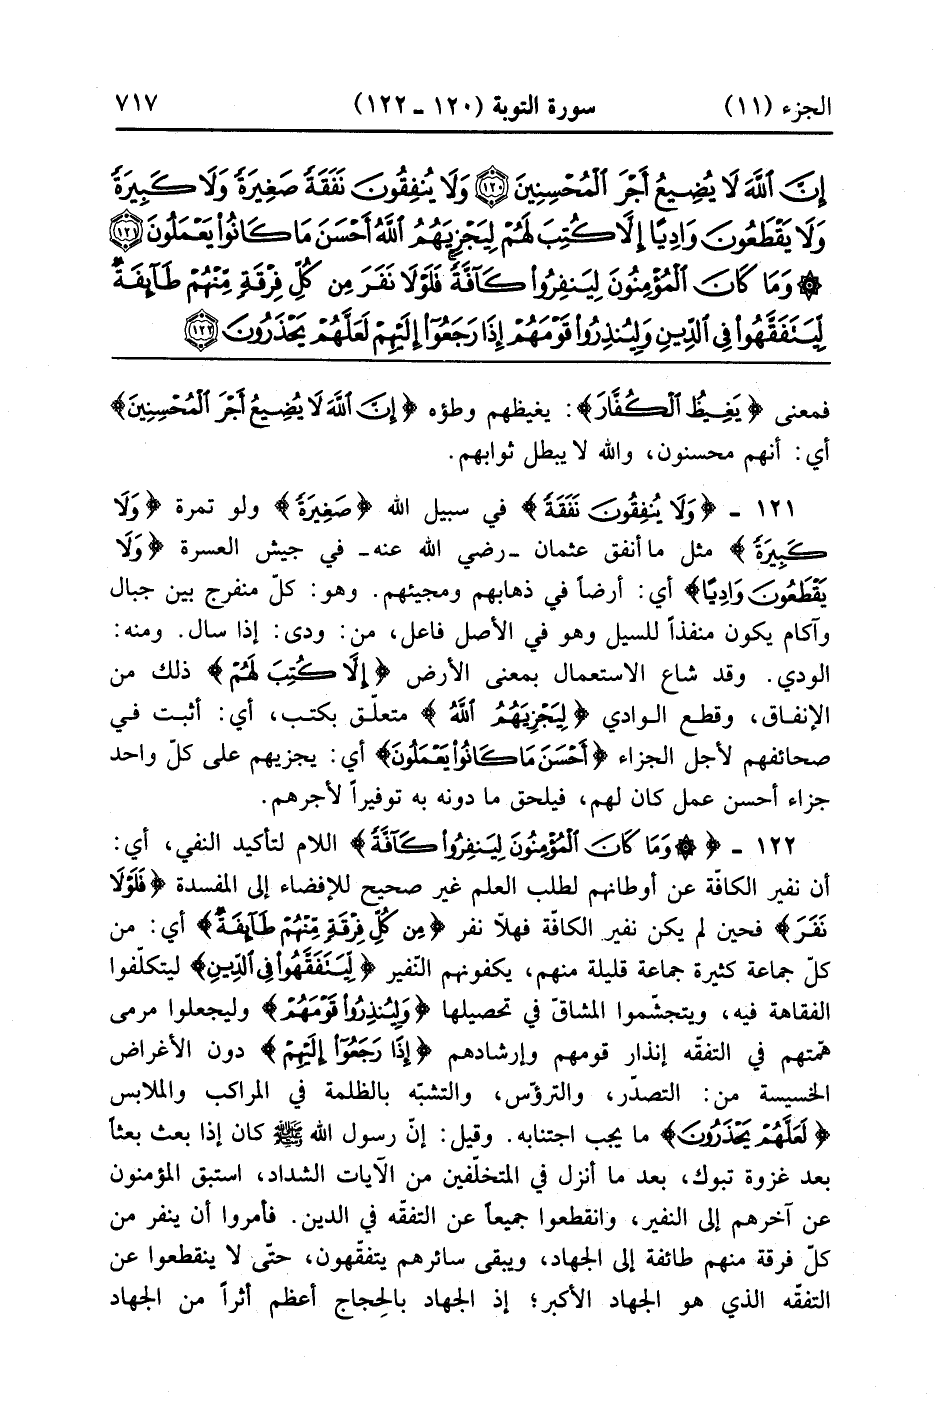 الجزء (١١) سورة التوبة (١٢٠ - ١٢٢) ٧١٧
إِنَّ ٱللَّهَ لَا يُضِيعُ أَجْرَ ٱلْمُحْسِنِينَ ١٢٠ وَلَا يُنفِقُونَ نَفَقَةً صَغِيرَةً وَلَا كَبِيرَةً
وَلَا يَقْطَعُونَ وَادِيًا إِلَّا كُتِبَ لَهُمْ لِيَجْزِيَهُمُ ٱللَّهُ أَحْسَنَ مَا كَانُوا۟ يَعْمَلُونَ ١٢١
۞ وَمَا كَانَ ٱلْمُؤْمِنُونَ لِيَنفِرُوا۟ كَآفَّةً فَلَوْلَا نَفَرَ مِن كُلِّ فِرْقَةٍ مِّنْهُمْ طَآئِفَةٌ
لِّيَتَفَقَّهُوا۟ فِى ٱلدِّينِ وَلِيُنذِرُوا۟ قَوْمَهُمْ إِذَا رَجَعُوٓا۟ إِلَيْهِمْ لَعَلَّهُمْ يَحْذَرُونَ ١٢٢
فمعنى ﴿يَغِيظُ ٱلْكُفَّارَ﴾: يغيظهم وطؤه ﴿إِنَّ ٱللَّهَ لَا يُضِيعُ أَجْرَ ٱلْمُحْسِنِينَ﴾
أي: أنهم محسنون، والله لا يبطل ثوابهم.
١٢١ - ﴿وَلَا يُنفِقُونَ نَفَقَةً﴾ في سبيل الله ﴿صَغِيرَةً﴾ ولو تمرة ﴿وَلَا
كَبِيرَةً﴾ مثل ما أنفق عثمان -رضي الله عنه- في جيش العسرة ﴿وَلَا
يَقْطَعُونَ وَادِيًا﴾ أي: أرضاً في ذهابهم ومجيئهم. وهو: كلّ منفرج بين جبال
وآكام يكون منفذاً للسيل وهو في الأصل فاعل، من: ودى: إذا سال. ومنه:
الودي. وقد شاع الاستعمال بمعنى الأرض ﴿إِلَّا كُتِبَ لَهُمْ﴾ ذلك من
الإنفاق، وقطع الوادي ﴿لِيَجْزِيَهُمُ ٱللَّهُ﴾ متعلّق بكتب، أي: أثبت في
صحائفهم لأجل الجزاء ﴿أَحْسَنَ مَا كَانُوا۟ يَعْمَلُونَ﴾ أي: يجزيهم على كلّ واحد
جزاء أحسن عمل كان لهم، فيلحق ما دونه به توفيراً لأجرهم.
١٢٢ - ﴿۞ وَمَا كَانَ ٱلْمُؤْمِنُونَ لِيَنفِرُوا۟ كَآفَّةً﴾ اللام لتأكيد النفي، أي:
أن نفير الكافّة عن أوطانهم لطلب العلم غير صحيح للإفضاء إلى المفسدة ﴿فَلَوْلَا
نَفَرَ﴾ فحين لم يكن نفير الكافة فهلاّ نفر ﴿مِن كُلِّ فِرْقَةٍ مِّنْهُمْ طَآئِفَةٌ﴾ أي: من
كلّ جماعة كثيرة جماعة قليلة منهم، يكفونهم النّفير ﴿لِّيَتَفَقَّهُوا۟ فِى ٱلدِّينِ﴾ ليتكلّفوا
الفقاهة فيه، ويتجشّموا المشاقّ في تحصيلها ﴿وَلِيُنذِرُوا۟ قَوْمَهُمْ﴾ وليجعلوا مرمى
همّتهم في التفقّه إنذار قومهم وإرشادهم ﴿إِذَا رَجَعُوٓا۟ إِلَيْهِمْ﴾ دون الأغراض
الخسيسة من: التصدّر، والترؤّس، والتشبّه بالظلمة في المراكب والملابس
﴿لَعَلَّهُمْ يَحْذَرُونَ﴾ ما يجب اجتنابه. وقيل: إنّ رسول الله ﷺ كان إذا بعث بعثاً
بعد غزوة تبوك، بعد ما أنزل في المتخلّفين من الآيات الشداد، استبق المؤمنون
عن آخرهم إلى النفير، وانقطعوا جميعاً عن التفقه في الدين. فأمروا أن ينفر من
كلّ فرقة منهم طائفة إلى الجهاد، ويبقى سائرهم يتفقّهون، حتّى لا ينقطعوا عن
التفقّه الذي هو الجهاد الأكبر؛ إذ الجهاد بالحِجاج أعظم أثراً من الجهاد